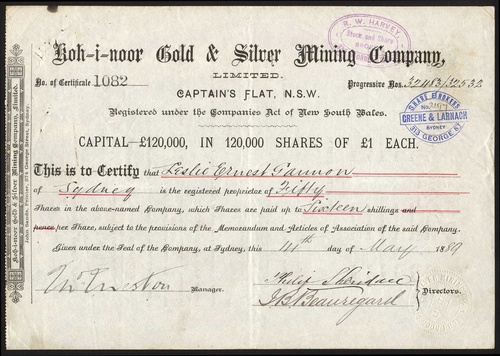 R. W. HARVEY,
Stock and Share
Koh-i-noor Gold & Silver Mining Company,
LIMITED.
No. of Certificate 1082
Progressive Nos. 32483/32532
CAPTAIN'S FLAT, N.S.W.
Registered under the Companies Act of New South Wales.
SHARE BROKERS
No.
GREENE & LARNACH
SYDNEY
313 GEORGE ST
CAPITAL—£120,000, IN 120,000 SHARES OF £1 EACH.
This is to Certify that Leslie Ernest Gannon
of Sydney is the registered proprietor of Fifty
Shares in the above-named Company, which Shares are paid up to Sixteen shillings and
pence per Share, subject to the provisions of the Memorandum and Articles of Association of the said Company.
Given under the Seal of the Company, at Sydney, this 14th day of May 1889
Manager.
Philip Sheridan
J.B. Beauregard
Directors.
Koh-i-noor Gold & Silver Mining Company, Limited.